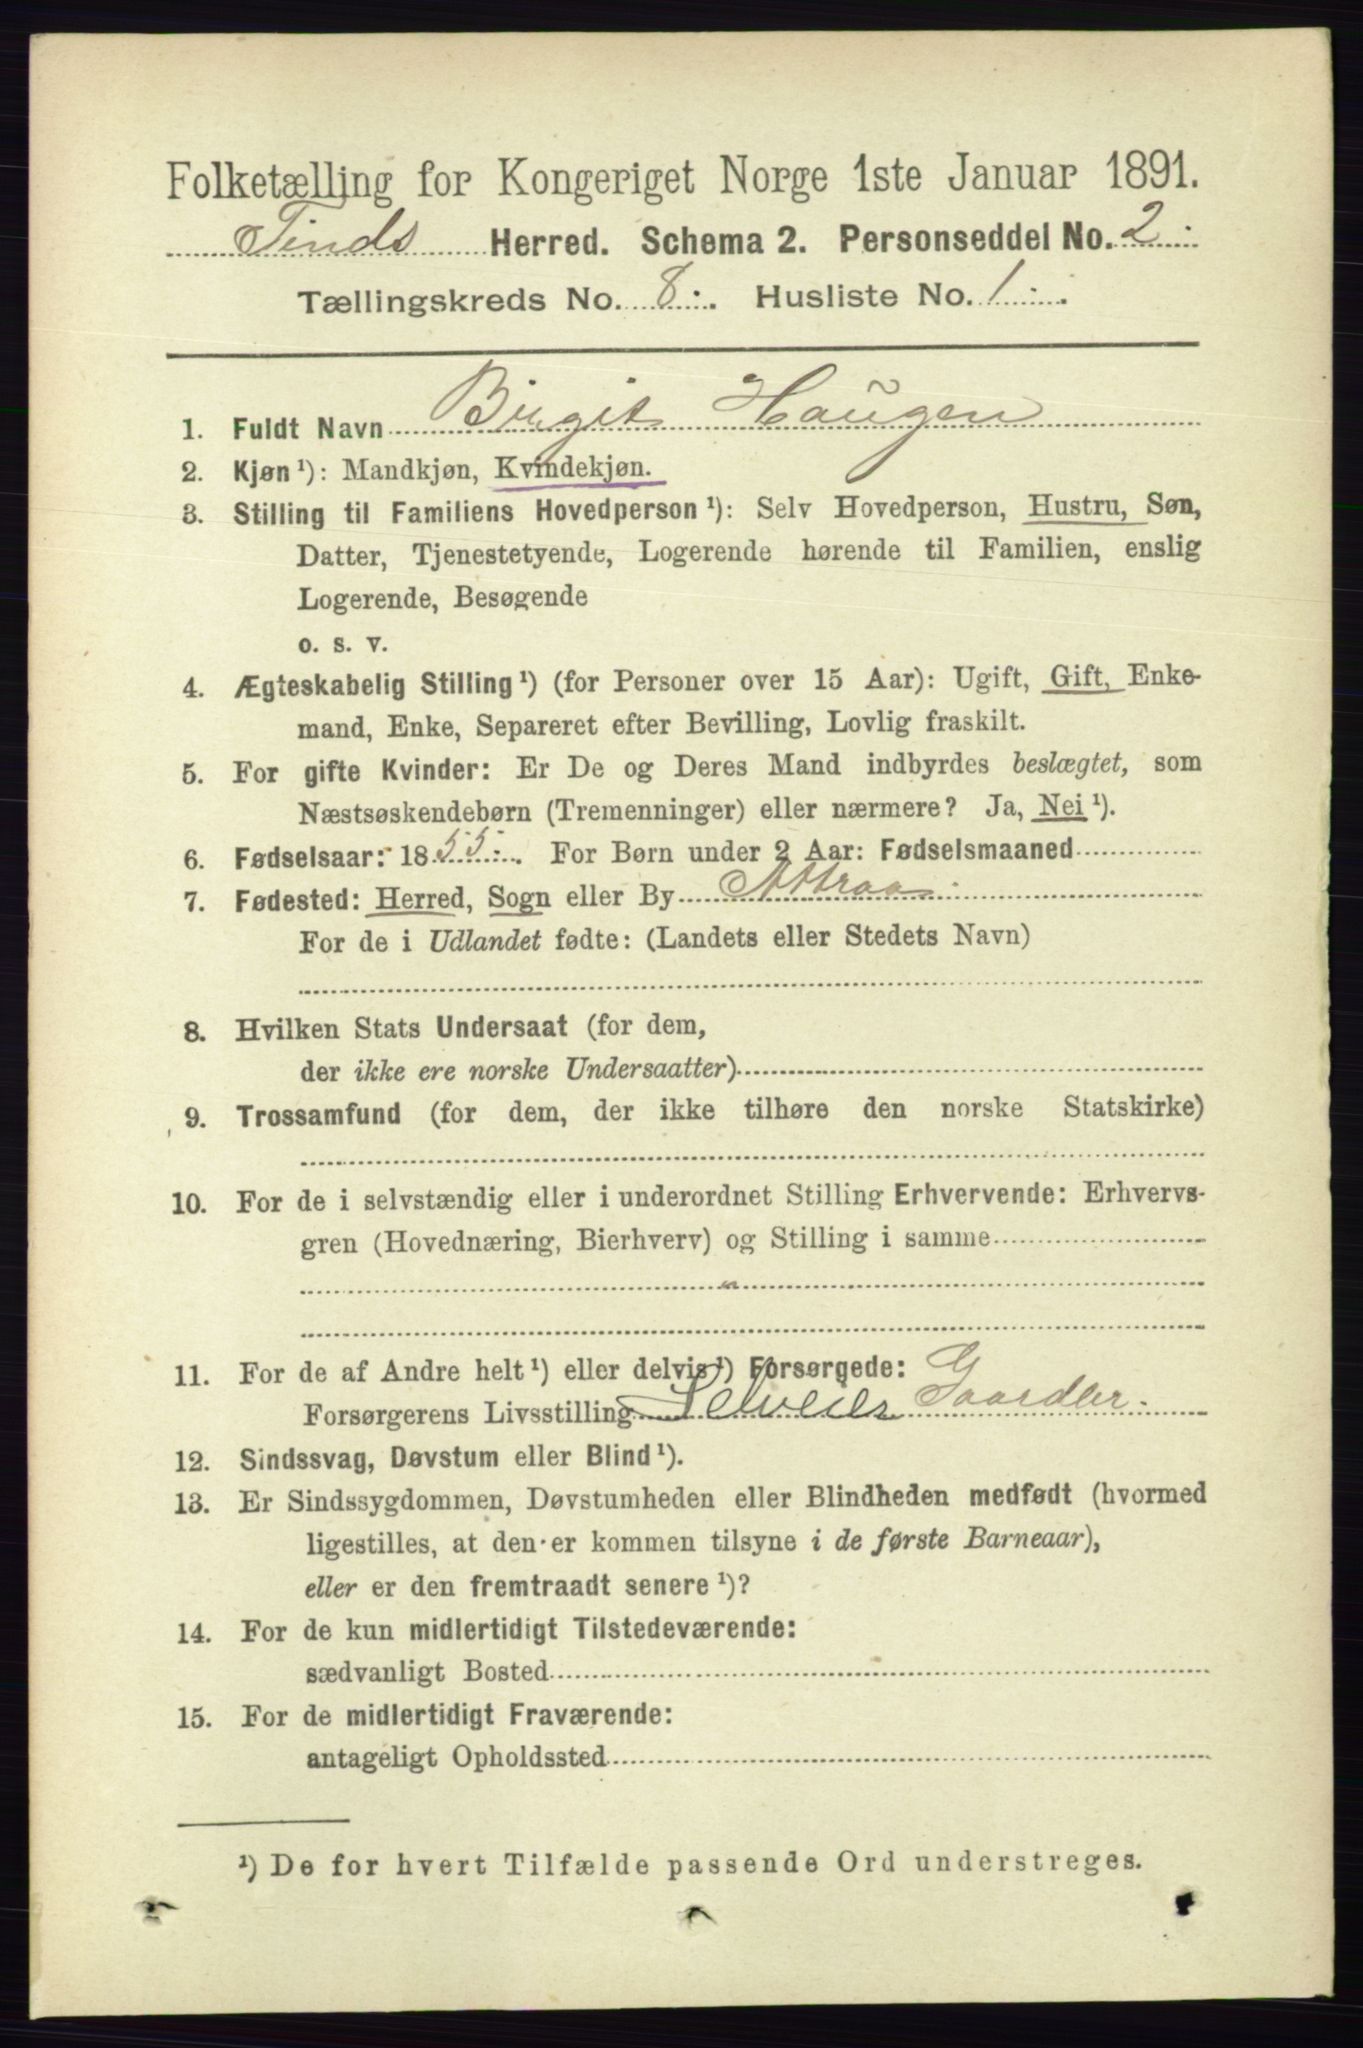 Folketælling for Kongeriget Norge 1ste Januar 1891.
Tinds Herred. Schema 2. Personseddel No. 2.
Tællingskreds No. 8. Husliste No. 1.
1. Fuldt Navn Birgit Haugen
2. Kjøn ¹): Mandkjøn, Kvindekjøn.
3. Stilling til Familiens Hovedperson ¹): Selv Hovedperson, Hustru, Søn,
Datter, Tjenestetyende, Logerende hørende til Familien, enslig
Logerende, Besøgende
o. s. v.
4. Ægteskabelig Stilling ¹) (for Personer over 15 Aar): Ugift, Gift, Enke-
mand, Enke, Separeret efter Bevilling, Lovlig fraskilt.
5. For gifte Kvinder: Er De og Deres Mand indbyrdes beslægtet, som
Næstsøskendebørn (Tremenninger) eller nærmere? Ja, Nei ¹).
6. Fødselsaar: 1855. For Børn under 2 Aar: Fødselsmaaned
7. Fødested: Herred, Sogn eller By Attraa
For de i Udlandet fødte: (Landets eller Stedets Navn)
8. Hvilken Stats Undersaat (for dem,
der ikke ere norske Undersaatter)
9. Trossamfund (for dem, der ikke tilhøre den norske Statskirke)
10. For de i selvstændig eller i underordnet Stilling Erhvervende: Erhvervs-
gren (Hovednæring, Bierhverv) og Stilling i samme
11. For de af Andre helt ¹) eller delvis ¹) Forsørgede:
Forsørgerens Livsstilling Selveier Gaardbr.
12. Sindssvag, Døvstum eller Blind ¹).
13. Er Sindssygdommen, Døvstumheden eller Blindheden medfødt (hvormed
ligestilles, at den er kommen tilsyne i de første Barneaar),
eller er den fremtraadt senere ¹)?
14. For de kun midlertidigt Tilstedeværende:
sædvanligt Bosted
15. For de midlertidigt Fraværende:
antageligt Opholdssted
¹) De for hvert Tilfælde passende Ord understreges.